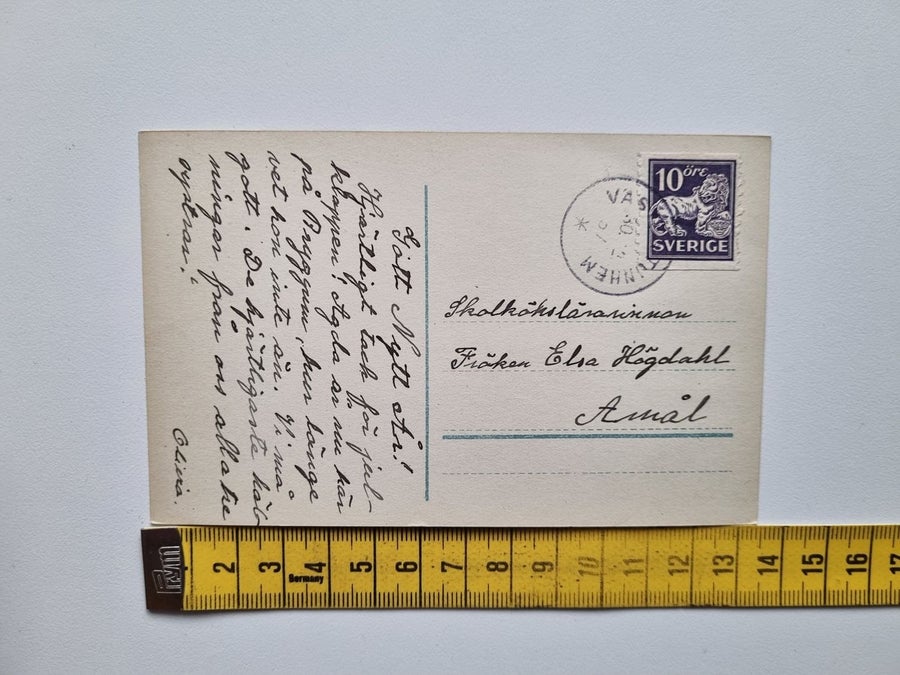 Gott Nytt År!
Hjärtligt tack för jul-
klappen! Agda är nu här
på Bryggum, hur länge
vet hon inte än. Vi må
gott. De hjärtligaste häls-
ningar från oss alla tre
systrar!
Olivia.
10 öre
SVERIGE
VÄS TUNHEM
30
Skolkökslärarinnan
Fröken Elsa Högdahl
Åmål
2 3 4 5 6 7 8 9 10 11 12 13 14 15 16 17
Germany